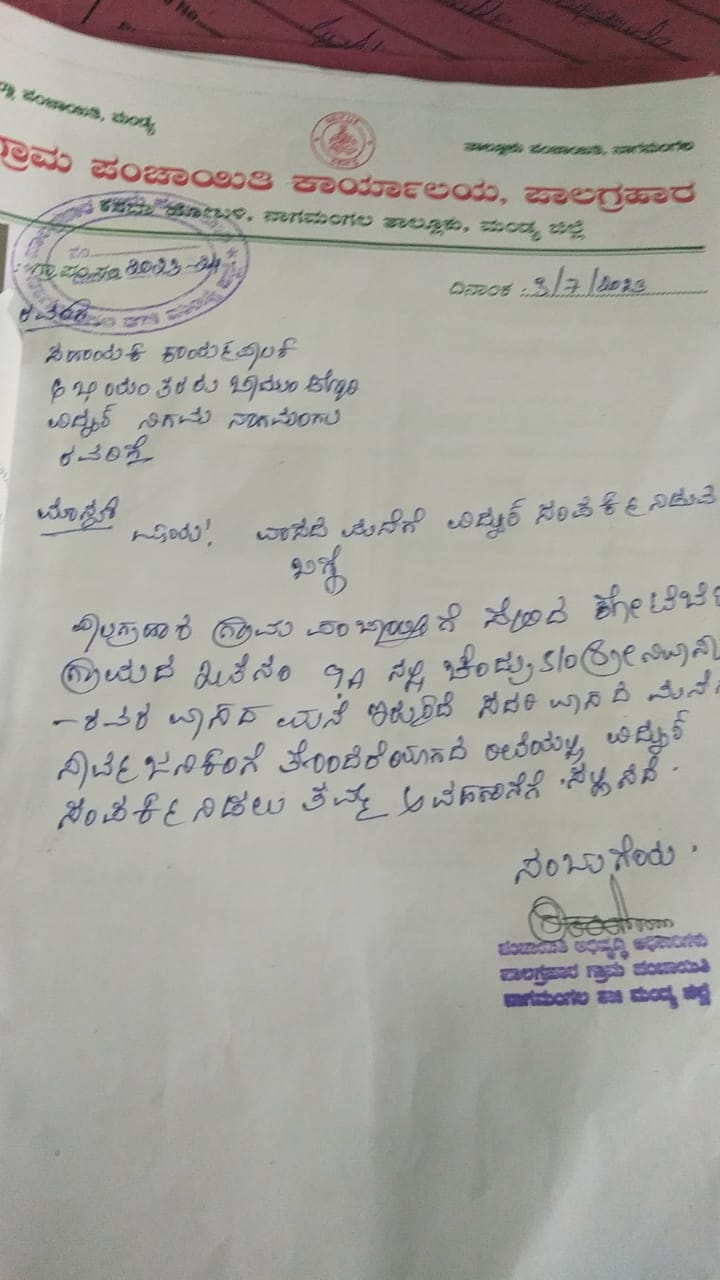 ಪಂಚಾಯಿತಿ, ಮಂಡ್ಯ
ತಾಲ್ಲೂಕು ಪಂಚಾಯಿತಿ, ನಾಗಮಂಗಲ
ಗ್ರಾಮ ಪಂಚಾಯಿತಿ ಕಾರ್ಯಾಲಯ, ಪಾಲಗ್ರಹಾರ
ಕಸಬಾ ಹೋಬಳಿ, ನಾಗಮಂಗಲ ತಾಲ್ಲೂಕು, ಮಂಡ್ಯ ಜಿಲ್ಲೆ
2023-24
ದಿನಾಂಕ : 3/7/2023
ರವರಿಗೆ
ಸಹಾಯಕ ಕಾರ್ಯಪಾಲಕ
ವಿದ್ಯುತ್ ನಿಗಮ ನಾಗಮಂಗಲ
ರವರಿಗೆ
ಮಾನ್ಯರೆ
ವಿಷಯ: ವಾಸದ ಮನೆಗೆ ವಿದ್ಯುತ್ ಸಂಪರ್ಕ ನೀಡುವ
ಬಗ್ಗೆ
ಪಾಲಗ್ರಹಾರ ಗ್ರಾಮ ಪಂಚಾಯ್ತಿಗೆ ಸೇರಿದ
ಗ್ರಾಮದ 9A ರಲ್ಲಿ S/o ಶ್ರೀನಿವಾಸ
-ರವರ ವಾಸದ ಮನೆ ಇರುತ್ತದೆ ಸದರಿ ವಾಸದ ಮನೆಗೆ
ಸಾರ್ವಜನಿಕರಿಗೆ ತೊಂದರೆಯಾಗದ ರೀತಿಯಲ್ಲಿ ವಿದ್ಯುತ್
ಸಂಪರ್ಕ ನೀಡಲು ತಮ್ಮ ಅವಗಾಹನೆಗೆ ಸಲ್ಲಿಸಿದೆ.
ಪಂಚಾಯಿತಿ ಅಭಿವೃದ್ಧಿ ಅಧಿಕಾರಿಗಳು
ಪಾಲಗ್ರಹಾರ ಗ್ರಾಮ ಪಂಚಾಯಿತಿ
ನಾಗಮಂಗಲ ತಾ|| ಮಂಡ್ಯ ಜಿಲ್ಲೆ